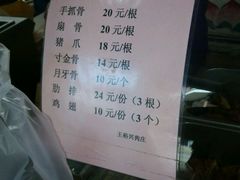 手抓骨 20元/根
扇骨 20元/根
猪爪 18元/根
寸金骨 14元/根
月牙骨 10元/个
肋排 24元/份（3根）
鸡翅 10元/份（3个）